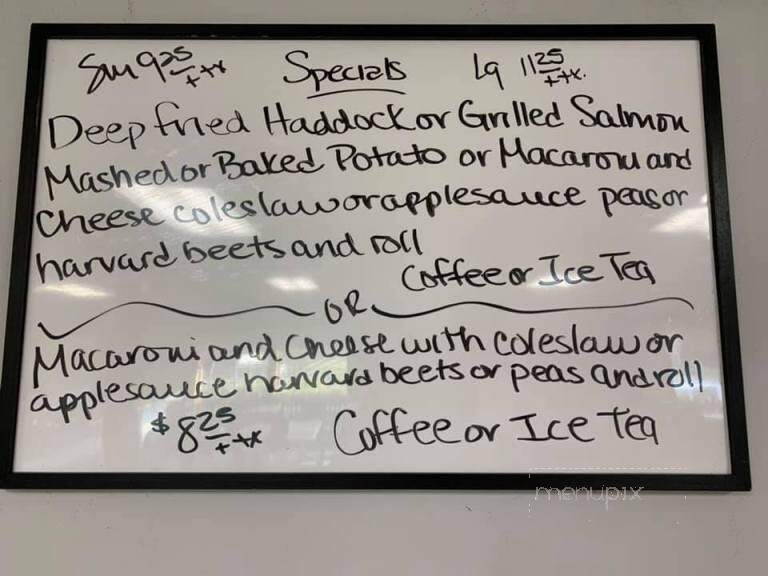 Sm 9.25 + tx Specials Lg 11.25 + tx.
Deep fried Haddock or Grilled Salmon
Mashed or Baked Potato or Macaroni and
Cheese coleslaw or applesauce peas or
harvard beets and roll
Coffee or Ice Tea
OR
Macaroni and Cheese with coleslaw or
applesauce harvard beets or peas and roll
$8.25 + tx Coffee or Ice Tea
menupix